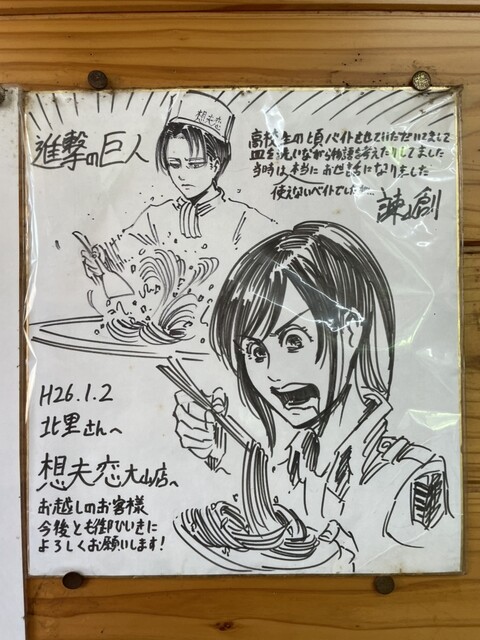 進撃の巨人
想夫恋
高校生の頃バイトさせていただいてまして
皿を洗いながら物語を考えたりしてました
当時は、本当にお世話になりました
使えないバイトでしたが…
諫山創
H26.1.2
北里さんへ
想夫恋大山店へ
お越しのお客様
今後とも御ひいきに
よろしくお願いします!